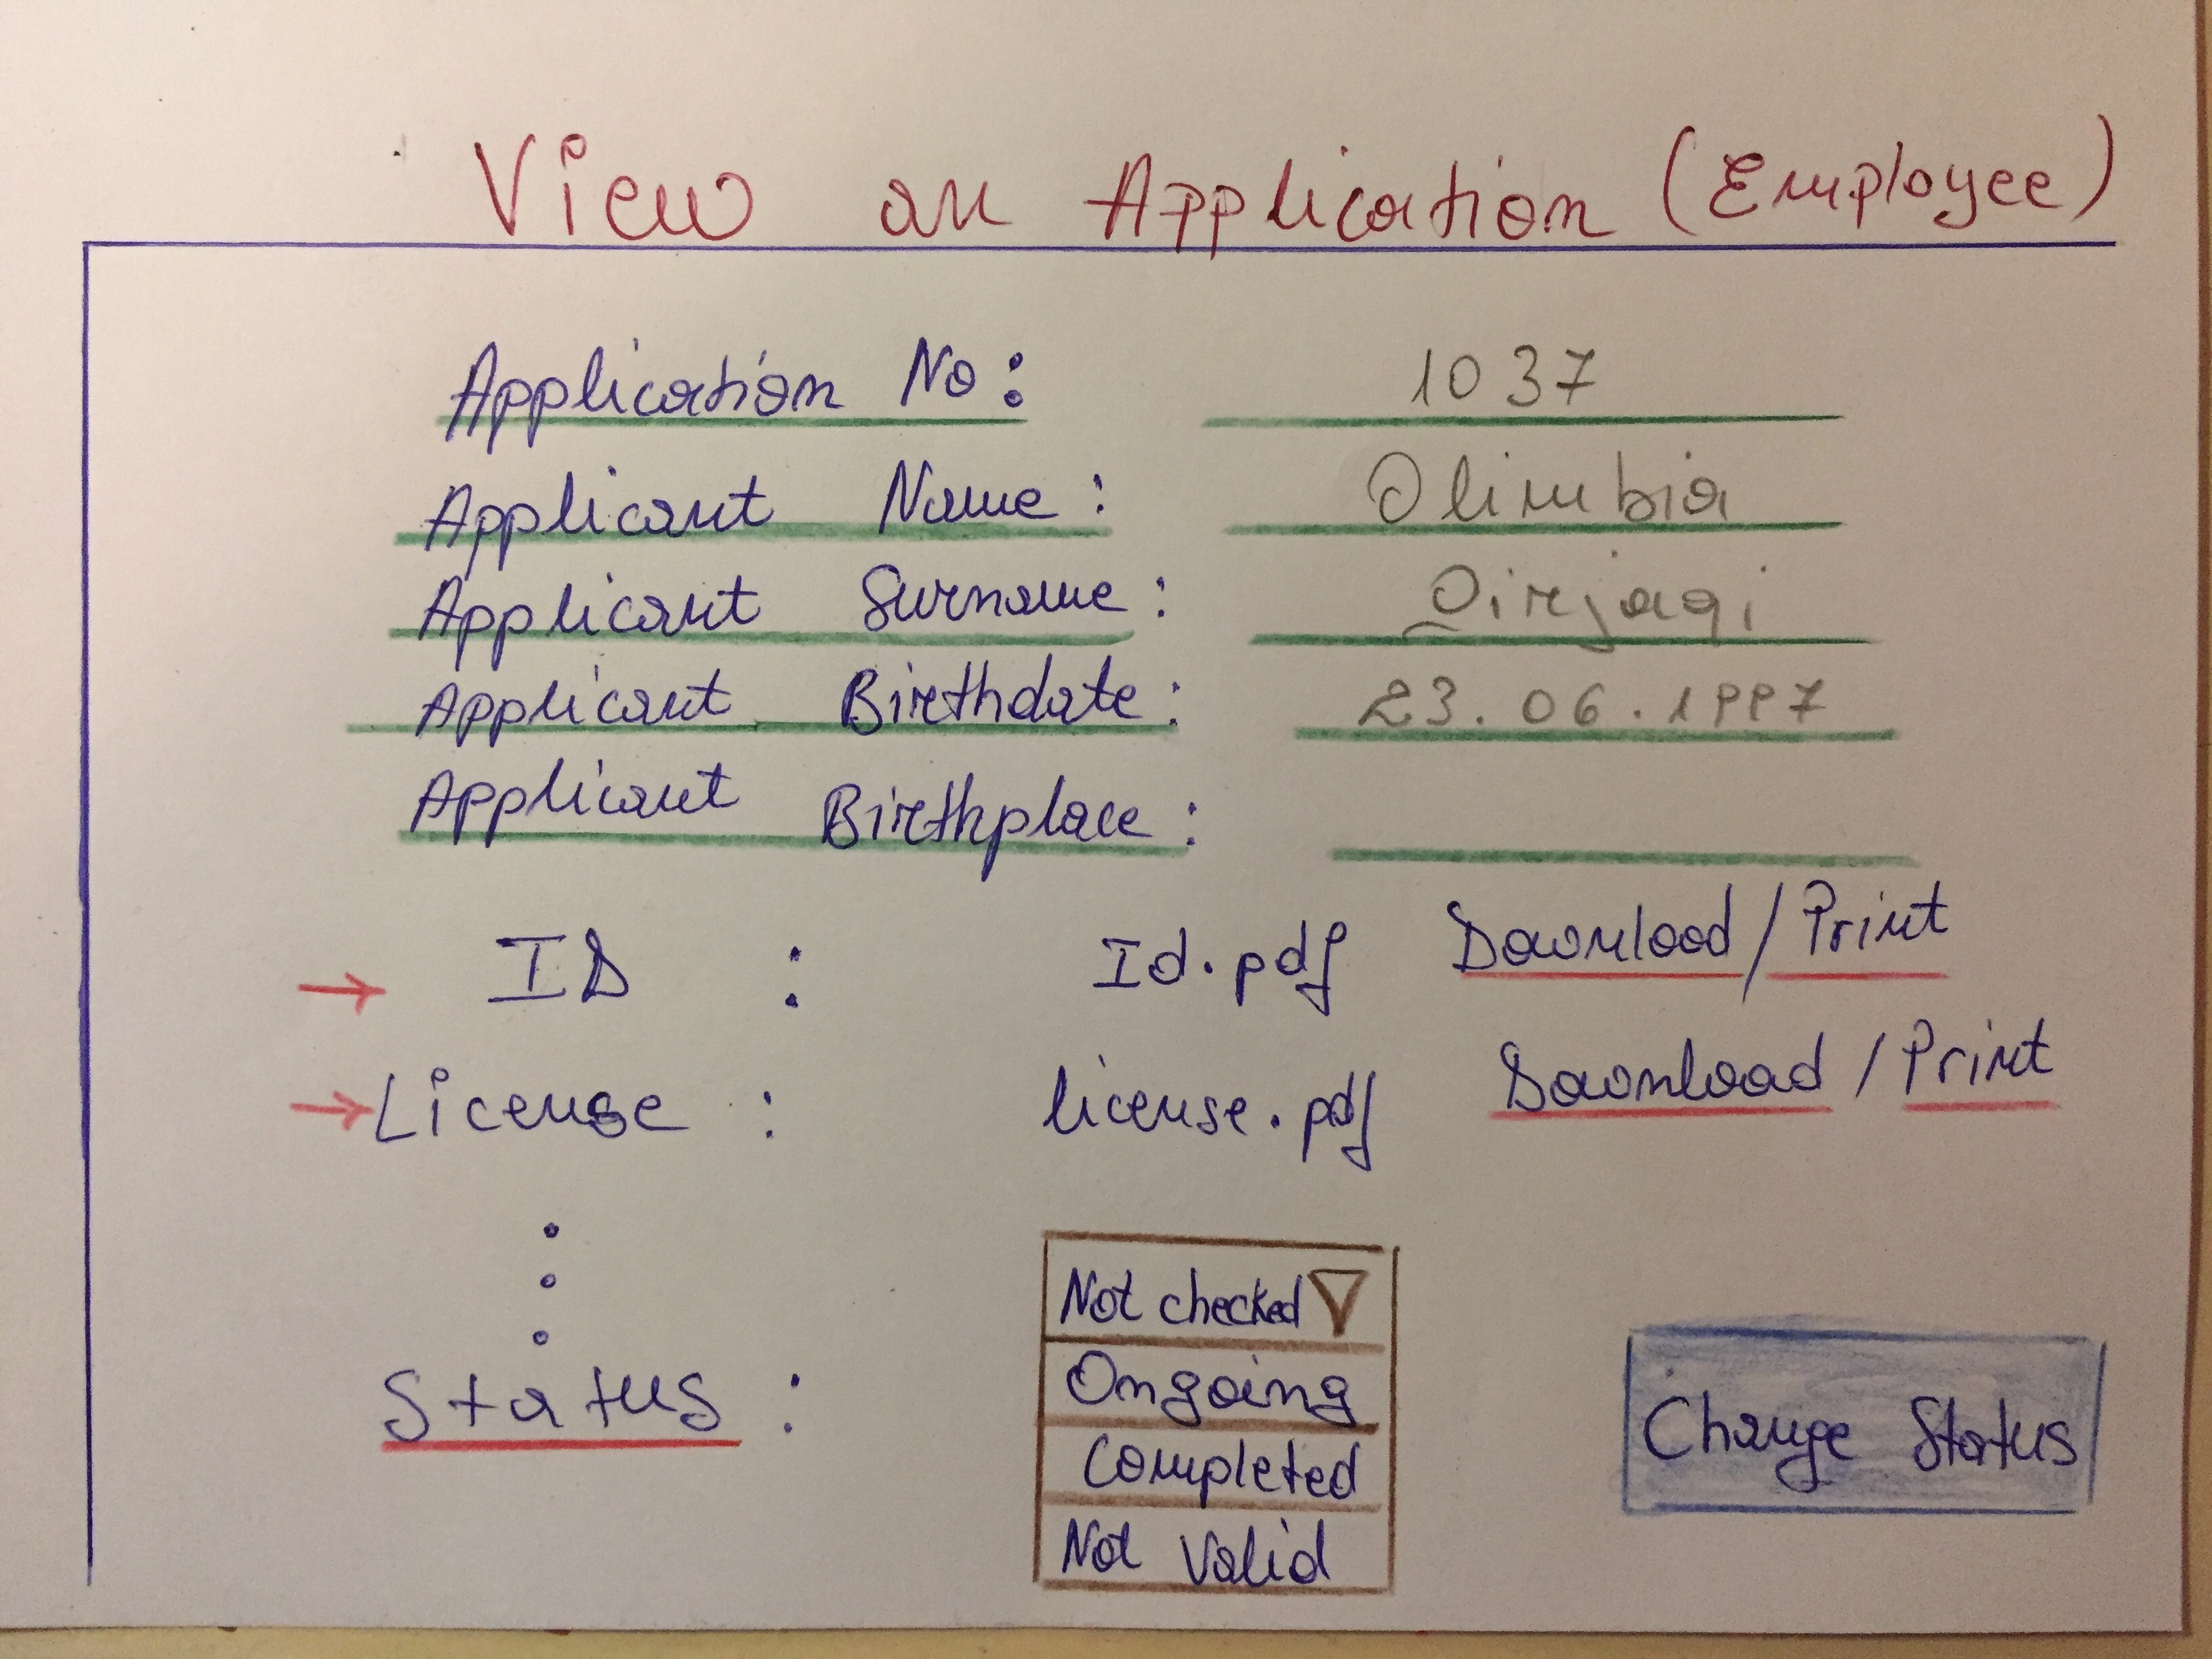 View an Application (Employee)
Application No: 1037
Applicant Name: Olimbia
Applicant Surname: Qirjaqi
Applicant Birthdate: 23.06.1997
Applicant Birthplace:
→ ID : Id.pdf Download/Print
→ License : license.pdf Download/Print
Not checked
Ongoing
Status : Change Status
Completed
Not Valid